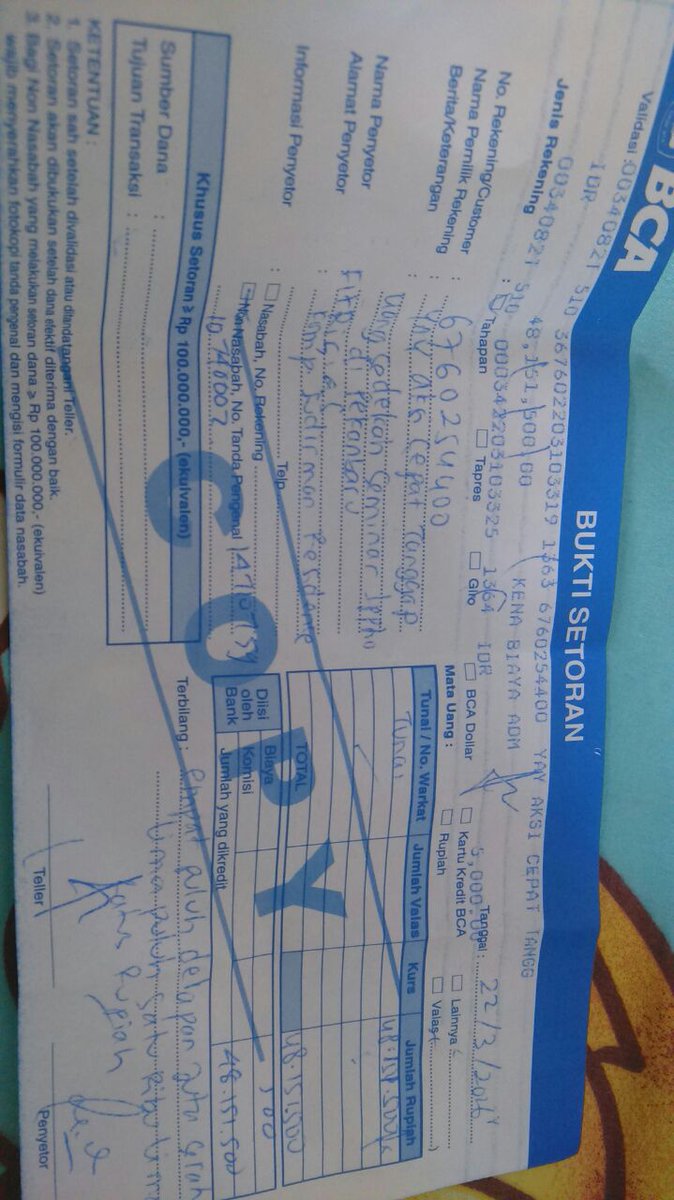 BCA
BUKTI SETORAN
Validasi :
00340821 S10 367602203103319 1363 6760254400 YAY AKSI CEPAT TANGG
IDR 48,151,500.00 KENA BIAYA ADM
00340821 S10 000342203103325 1364 IDR 5,000.00
Tanggal : 22/3/2016
Jenis Rekening : Tahapan Tapres Giro BCA Dollar Kartu Kredit BCA Lainnya
Mata Uang : Rupiah Valas
No. Rekening/Customer : 6760254400
Nama Pemilik Rekening : Yay Aksi Cepat Tanggap
Berita/Keterangan : Uang sedekah seminar
di Pekanbaru
Nama Penyetor :
Alamat Penyetor : Komp Sudirman
Telp.
Informasi Penyetor : Nasabah, No. Rekening
Non Nasabah, No. Tanda Pengenal
Tunai / No. Warkat Jumlah Valas Kurs Jumlah Rupiah
Tunai 48.151.500
TOTAL 48.151.500
Diisi oleh Bank
Biaya
Komisi
Jumlah yang dikredit 48.151.500
Khusus Setoran ≥ Rp 100.000.000,- (ekuivalen)
Sumber Dana :
Tujuan Transaksi :
Terbilang : empat puluh delapan juta
lima puluh satu ribu lima
ratus rupiah
COPY
Teller
Penyetor
KETENTUAN :
1. Setoran sah setelah divalidasi atau ditandatangani Teller.
2. Setoran akan dibukukan setelah dana efektif diterima dengan baik.
3. Bagi Non Nasabah yang melakukan setoran dana ≥ Rp 100.000.000,- (ekuivalen)
wajib menyerahkan fotokopi tanda pengenal dan mengisi formulir data nasabah.